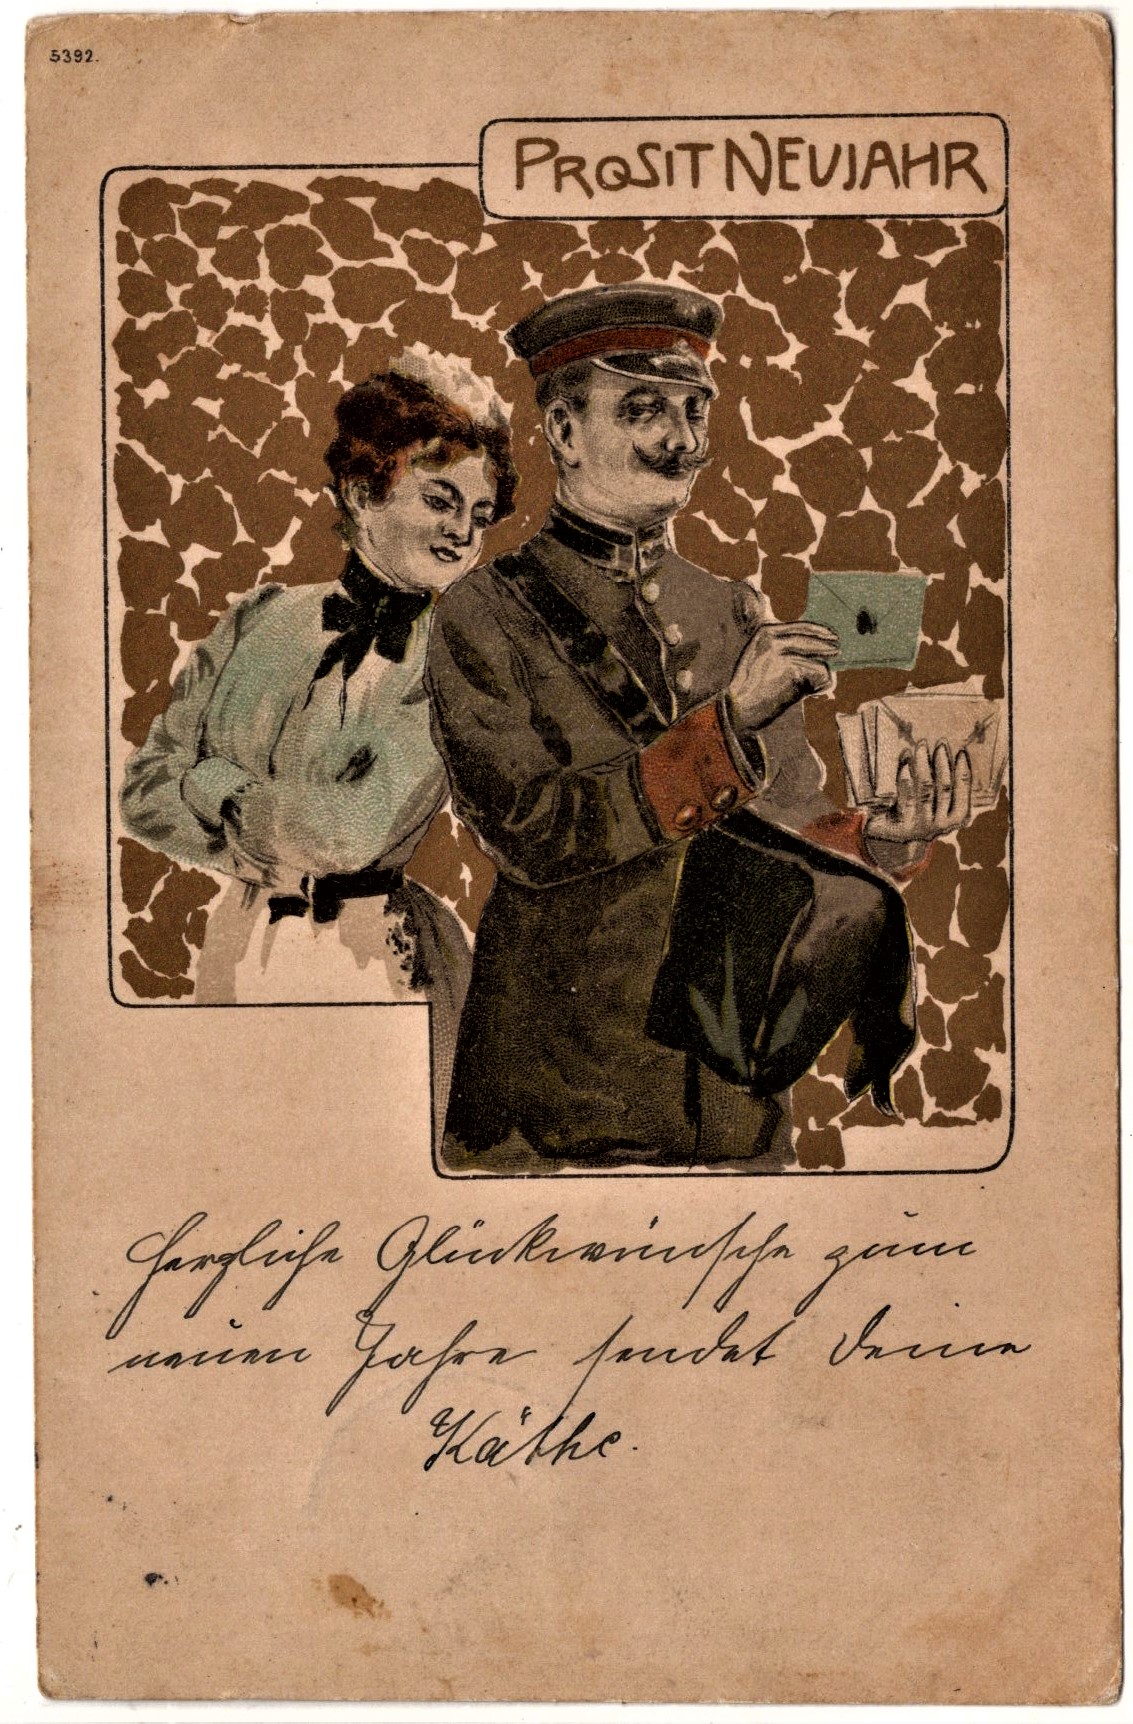 5392.
PROSIT NEUJAHR
Herzliche Glückwünsche zum
neuen Jahre sendet Deine
Käthe.